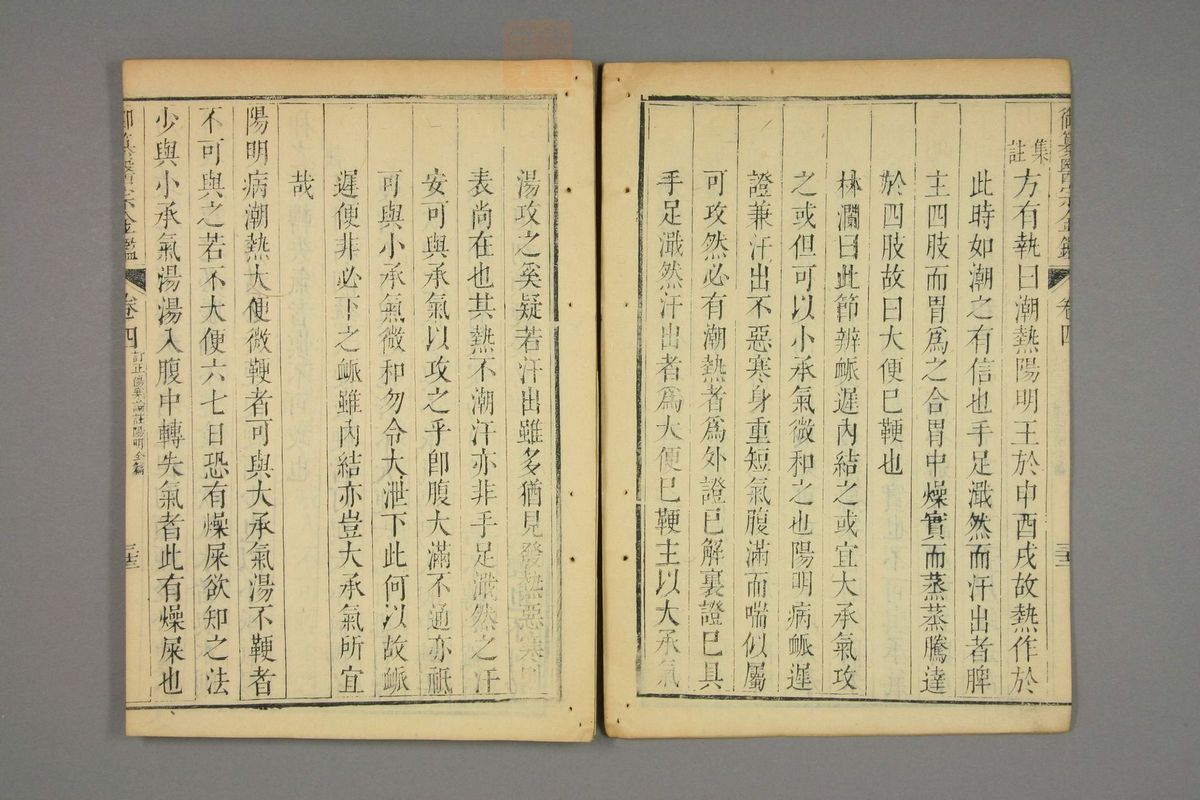 御纂醫宗金鑑 卷四 三十三
集註
方有執曰潮熱陽明王於申酉戌故熱作於
此時如潮之有信也手足濈然而汗出者脾
主四肢而胃爲之合胃中燥實而蒸蒸騰達
於四肢故曰大便已鞕也
林瀾曰此節辨脈遲內結之或宜大承氣攻
之或但可以小承氣微和之也陽明病脈遲
證兼汗出不惡寒身重短氣腹滿而喘似屬
可攻然必有潮熱者爲外證已解裏證已具
手足濈然汗出者爲大便已鞕主以大承氣
湯攻之奚疑若汗出雖多猶見發熱惡寒則
表尚在也其熱不潮汗亦非手足濈然之汗
安可與承氣以攻之乎卽腹大滿不通亦祇
可與小承氣微和勿令大泄下此何以故脈
遲便非必下之脈雖內結亦豈大承氣所宜
哉
陽明病潮熱大便微鞕者可與大承氣湯不鞕者
不可與之若不大便六七日恐有燥屎欲知之法
少與小承氣湯湯入腹中轉失氣者此有燥屎也
御纂醫宗金鑑 卷四 訂正傷寒論註陽明全篇